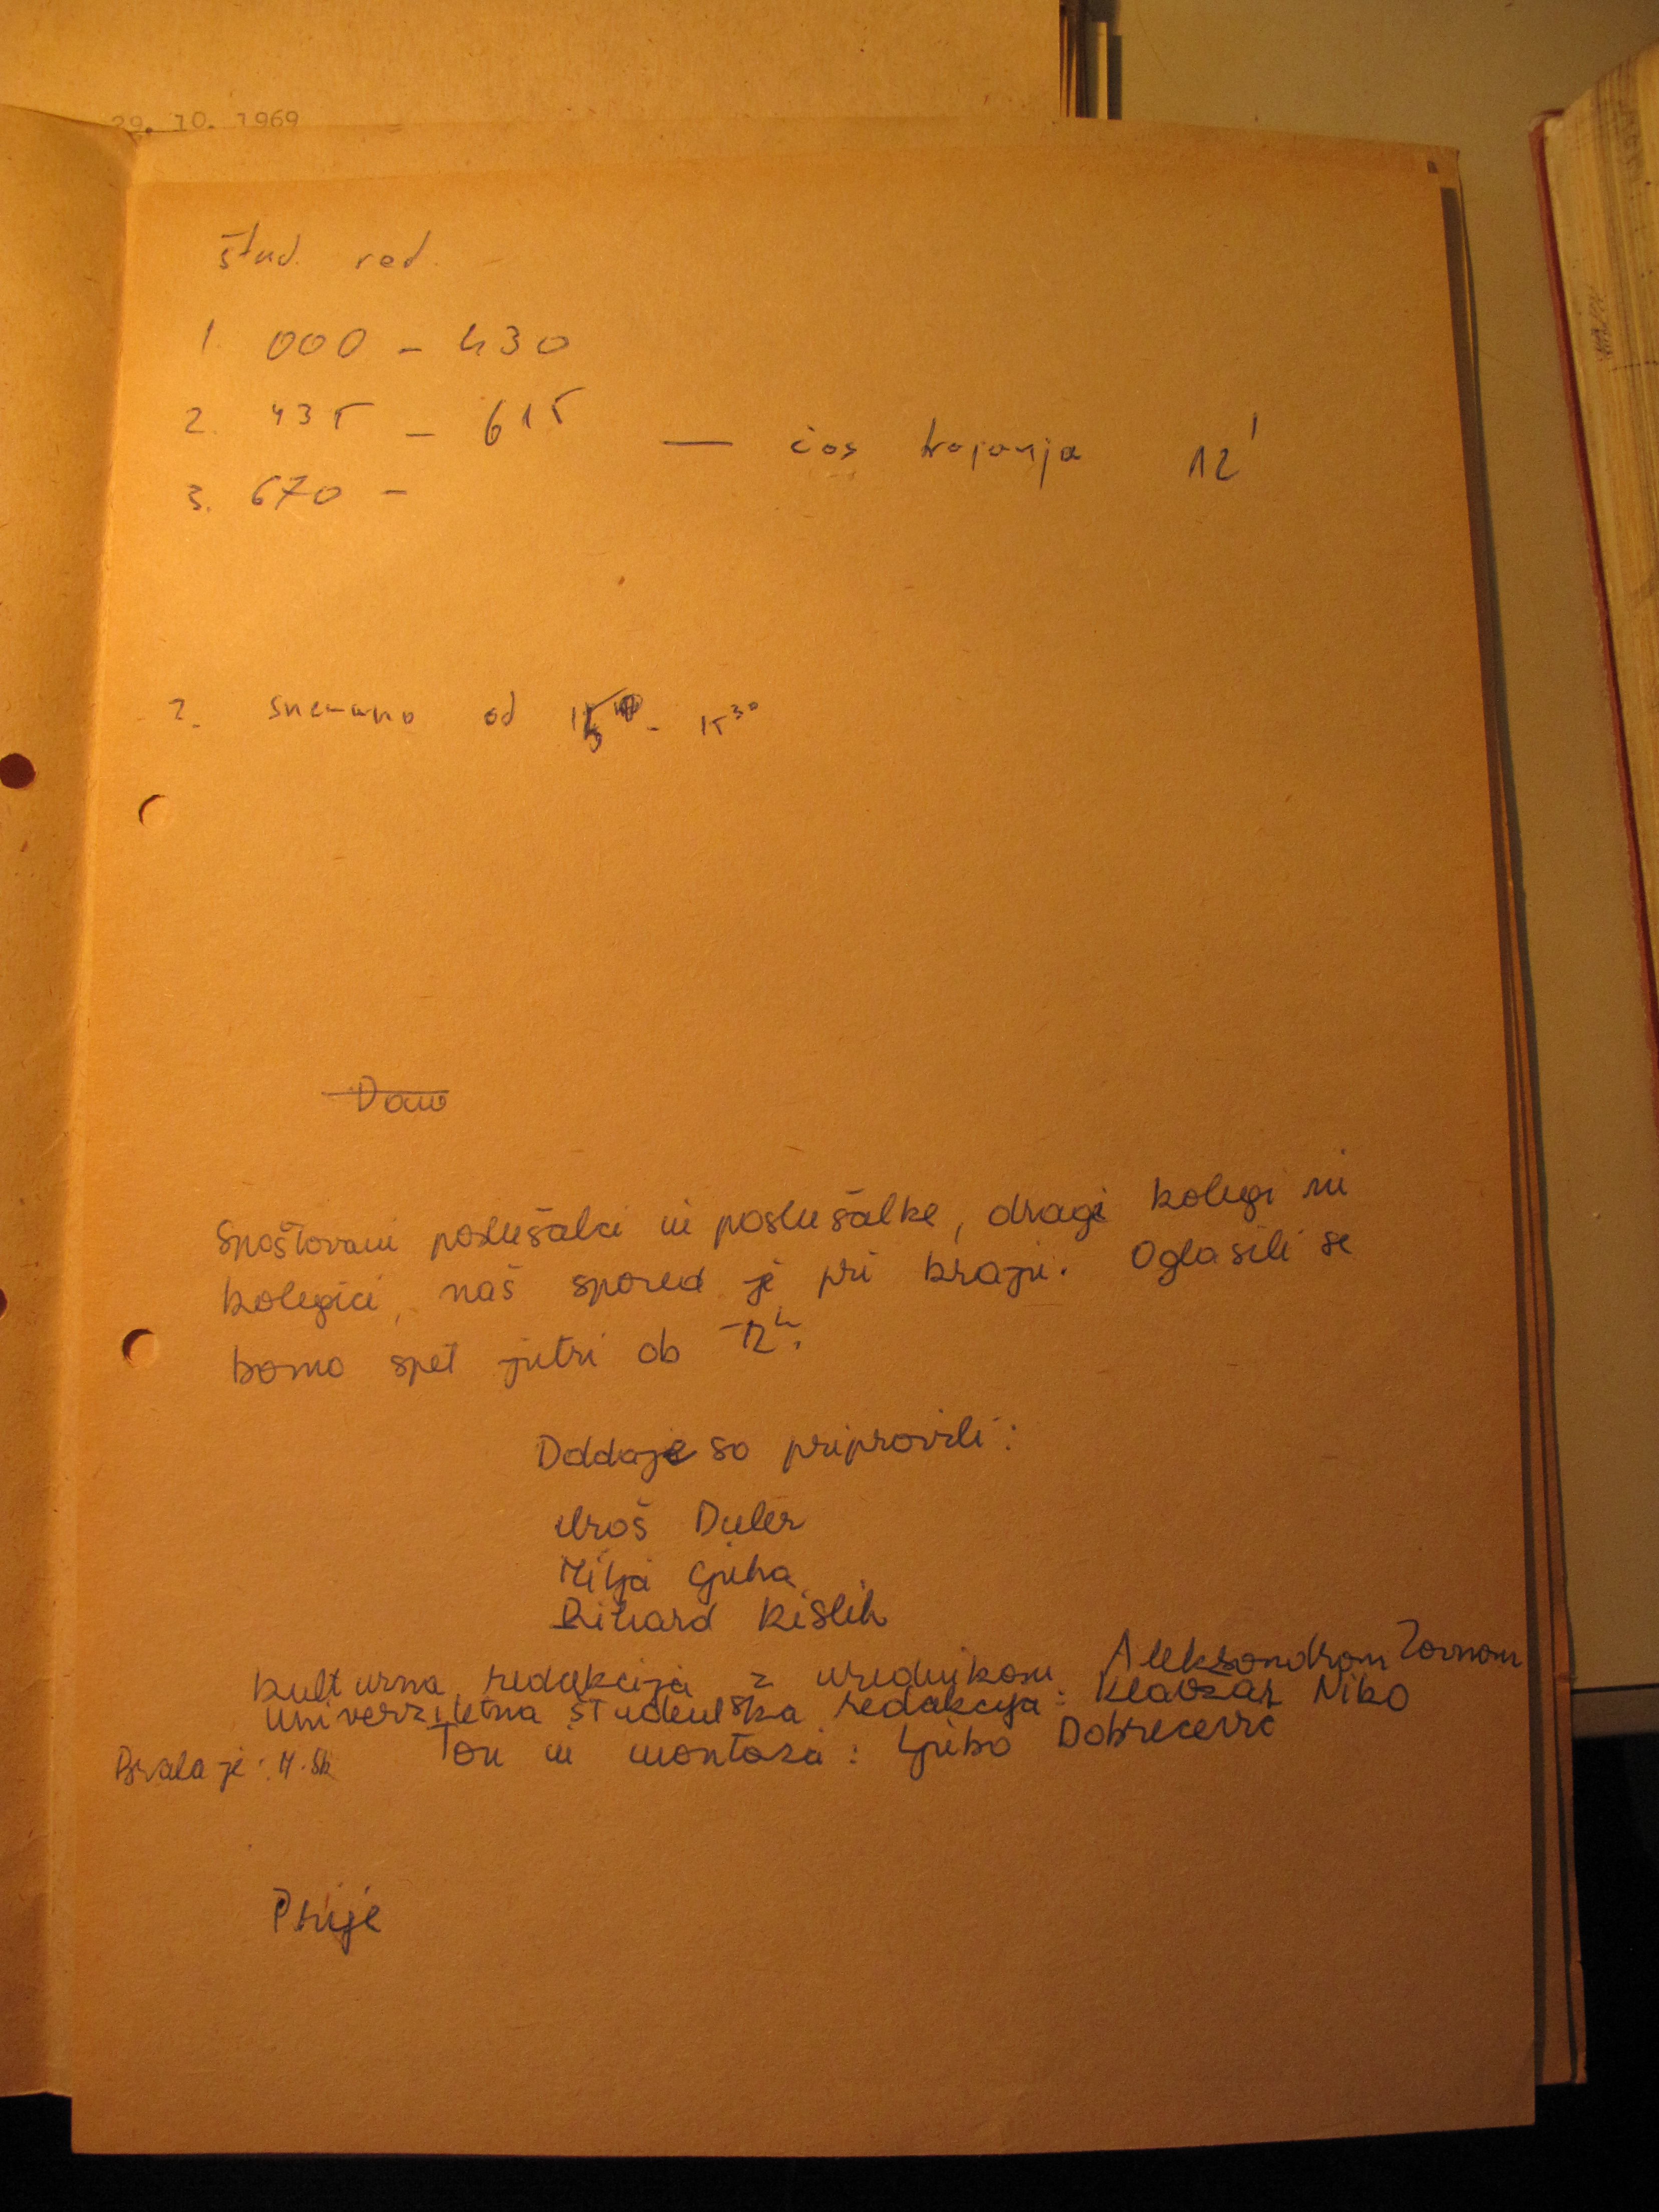 29. 10. 1969
štud. red.
1. 000 - 430
2. 435 - 615 — čas trajanja 12'
3. 670 -
2. snemano od - 15³⁰
Spoštovani poslušalci in poslušalke, dragi kolegi in
kolegici, naš spored je pri kraju. Oglasili se
bomo spet jutri ob 12ʰ.
Oddaje so pripravili:
Uroš
Mitja
Rihard Kislih
Kulturna redakcija z urednikom Aleksandrom Zornom
Univerzitetna študentska redakcija: Klavžar Niko
Brala je: M. Šk Ton in montaža: Ljubo